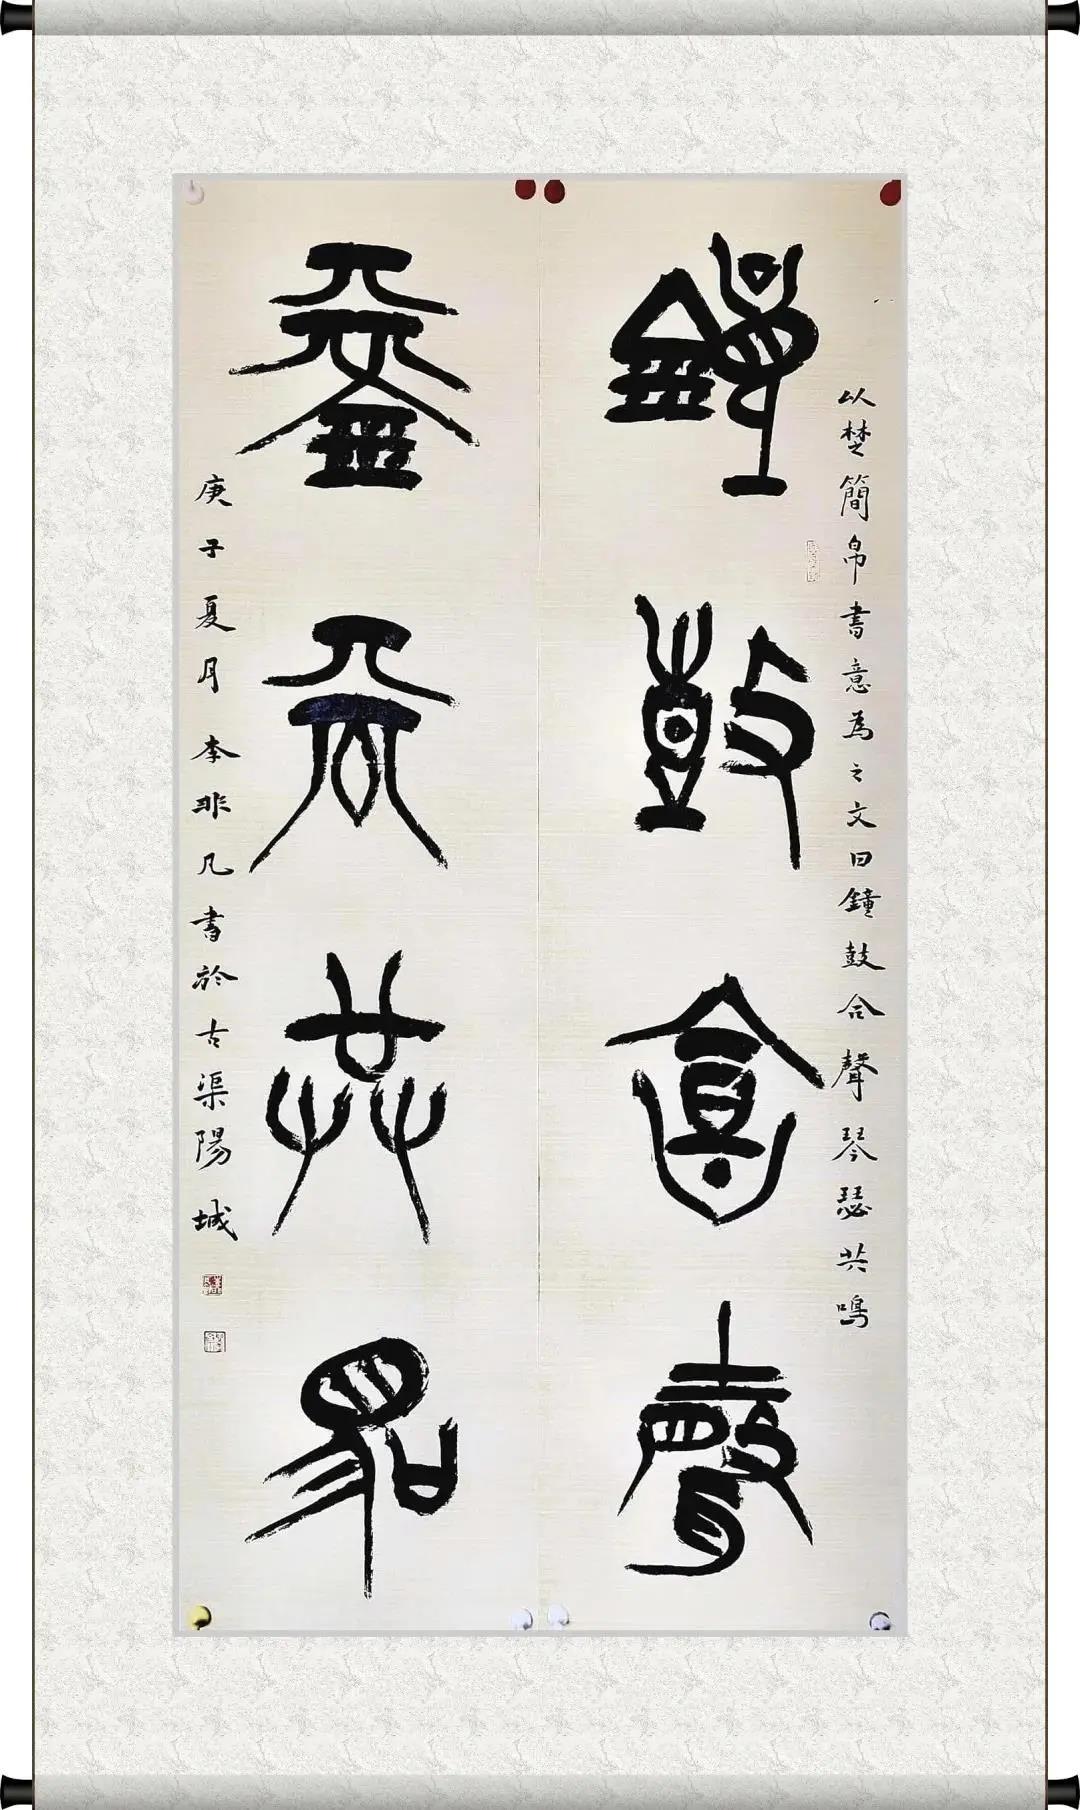 鐘鼓合聲
以楚簡帛書意為之文曰鐘鼓合聲琴瑟共鳴
琴瑟共鳴
庚子夏月李非凡書於古渠陽城